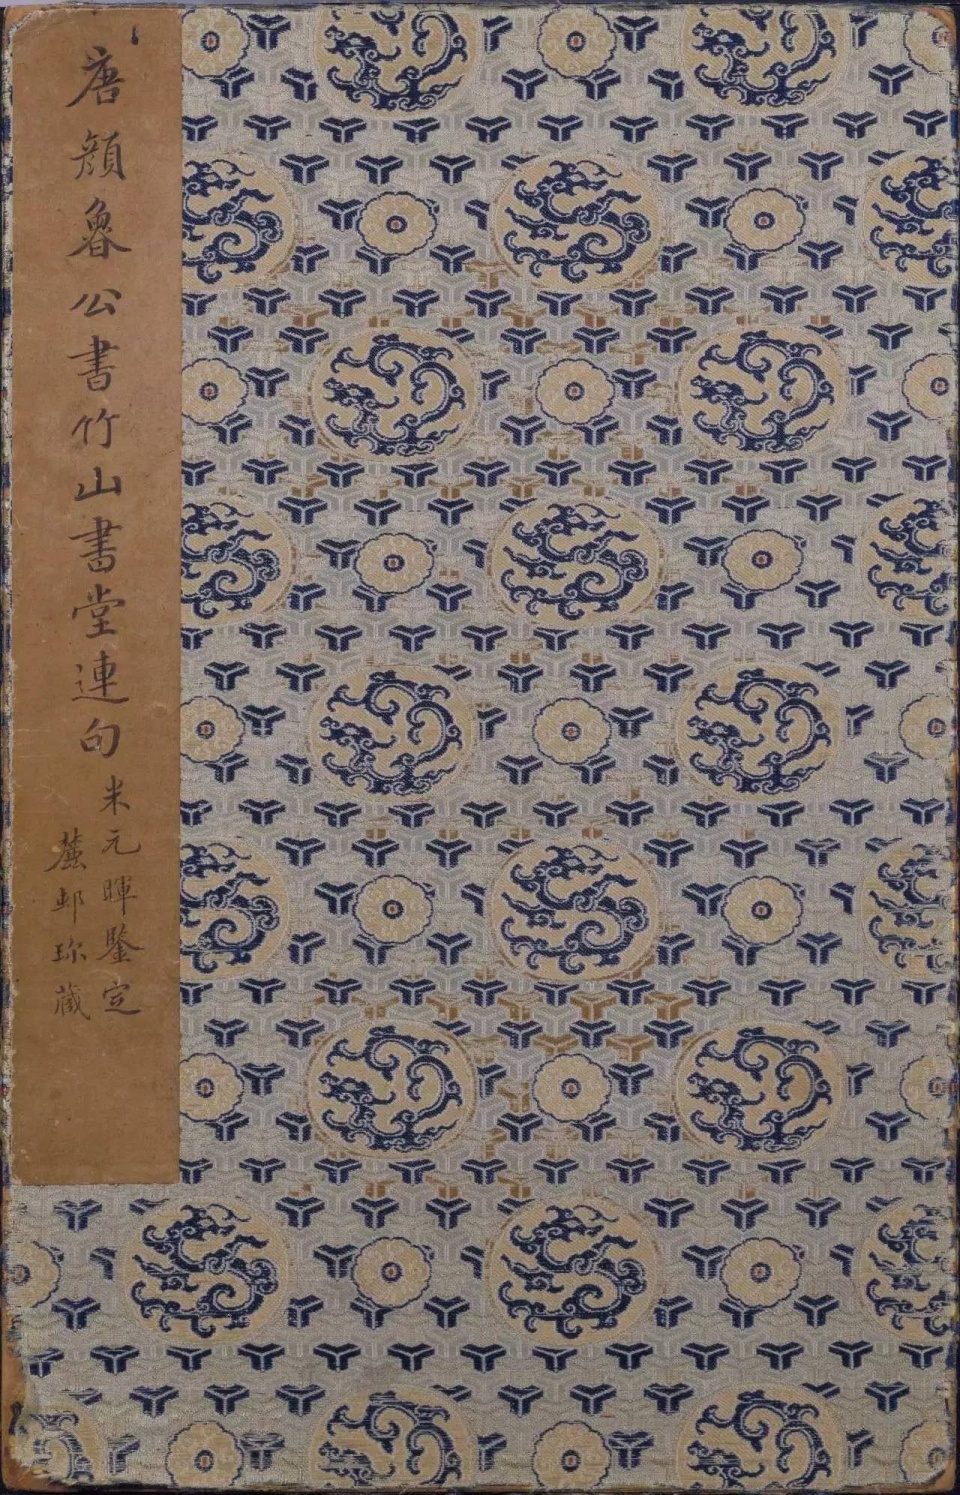 唐顏魯公書竹山書堂連句
米元暉鑒定
麓邨珎藏